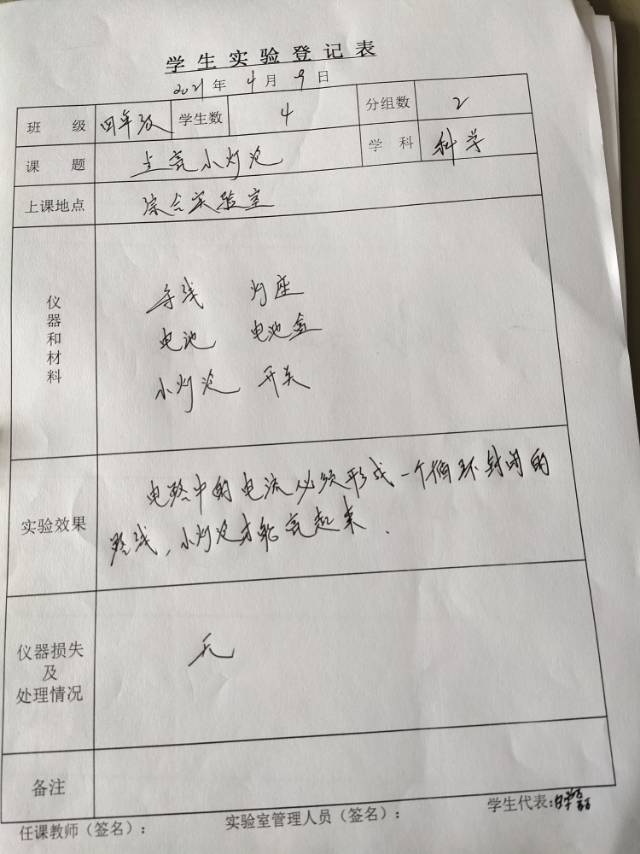 学生实验登记表
2021年 4月 9日
班 级 四年级 学生数 4 分组数 2
课 题 点亮小灯泡 学 科 科学
上课地点 综合实验室
仪器和材料
导线 灯座
电池 电池盒
小灯泡 开关
实验效果
电路中的电流必须形成一个循环封闭的
路线,小灯泡才能亮起来.
仪器损失
及
处理情况
无
备注
任课教师(签名): 实验室管理人员(签名): 学生代表: